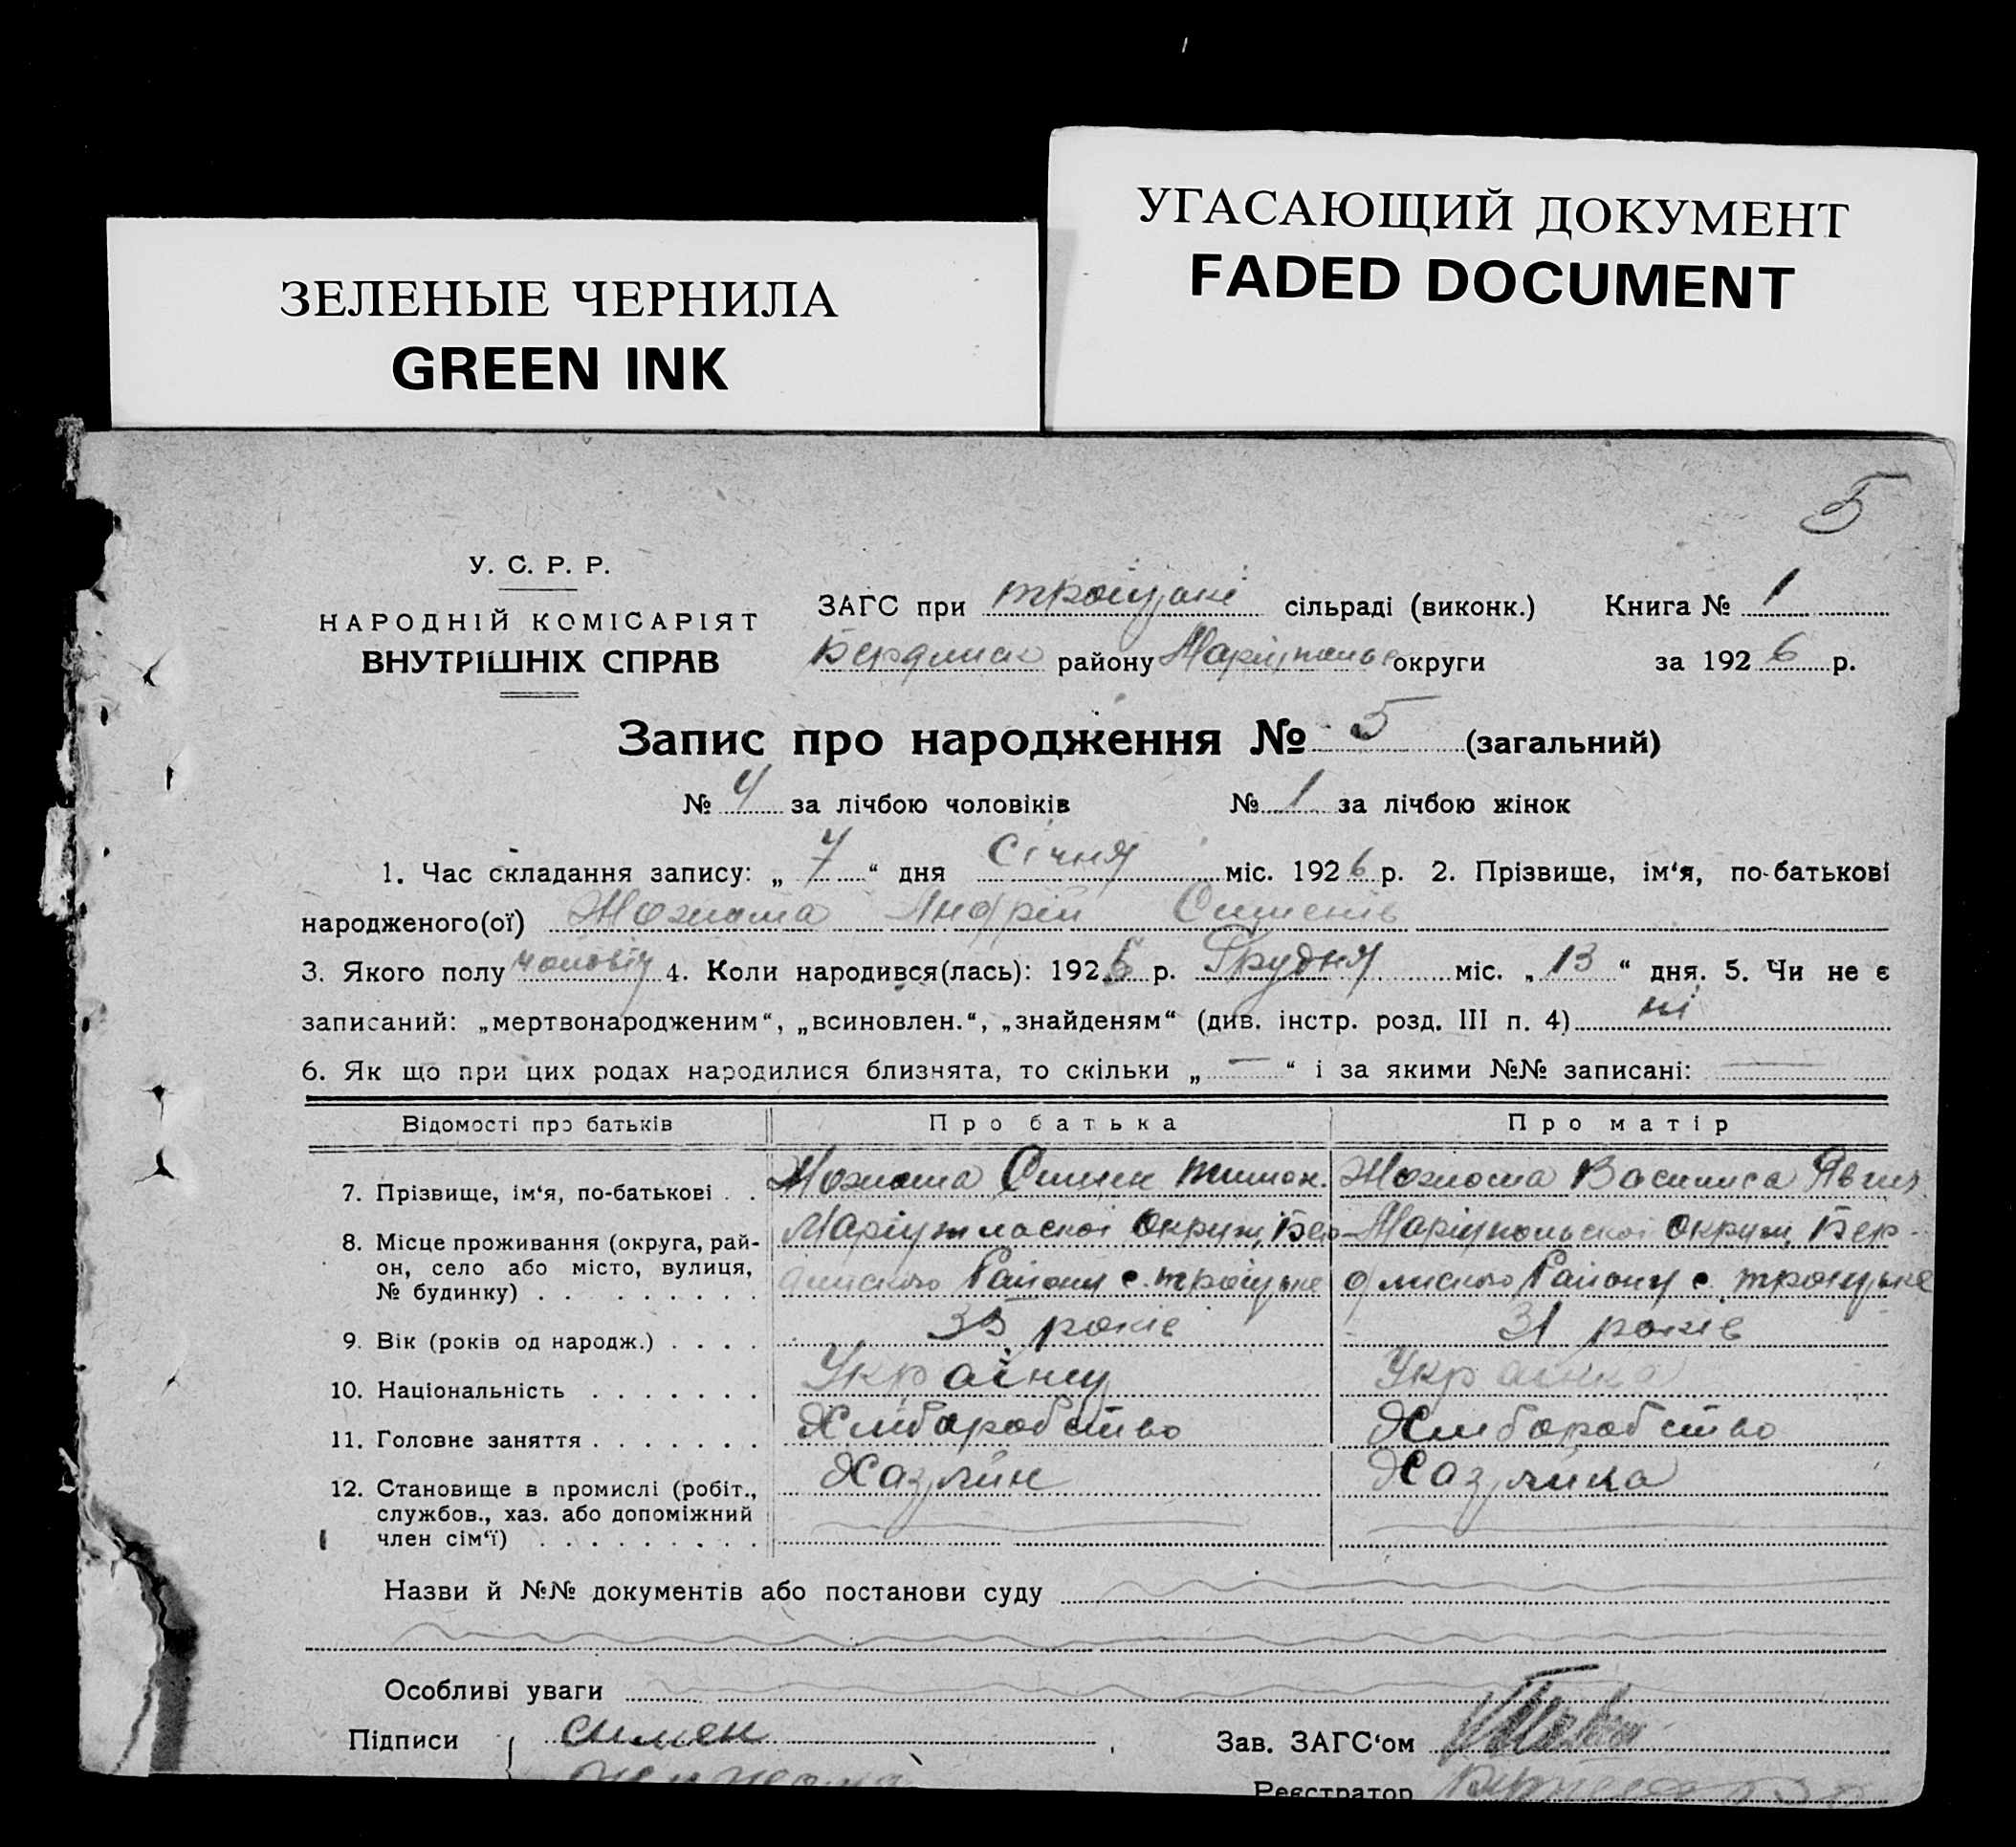 УГАСАЮЩИЙ ДОКУМЕНТ
FADED DOCUMENT
ЗЕЛЕНЫЕ ЧЕРНИЛА
GREEN INK
5
У. С. Р. Р.
НАРОДНІЙ КОМІСАРІЯТ
ВНУТРІШНІХ СПРАВ
ЗАГС при троіцькі сільраді (виконк.) Книга № 1
району округи за 192 6 р.
Запис про народження № 5 (загальний)
№ 4 за лічбою чоловіків № 1 за лічбою жінок
1. Час складання запису: „ 7 “ дня Січня міс. 192 6 р. 2. Прізвище, ім‘я, по-батькові
народженого(ої) Андрій Сименів
3. Якого полу чоловіч 4. Коли народився(лась): 192 р. Грудня міс. „ 13 “ дня. 5. Чи не є
записаний: „мертвонародженим“, „всиновлен.“, „знайденям“ (див. інстр. розд. III п. 4) ні
6. Як що при цих родах народилися близнята, то скільки „ — “ і за якими №№ записані: —
Відомості про батьків Про батька Про матір
7. Прізвище, ім‘я, по-батькові . . Симен Тимох. Василиса
8. Місце проживання (округа, рай-
он, село або місто, вулиця,
№ будинку) . . . . . . . . .
Округи, Бер- Маріупольскоі Округи, Бер-
Району с. троіцьке Району с. троіцьке
9. Вік (років од народж.) . . . . 35 років 31 років
10. Національність . . . . . . . Украінец Украінка
11. Головне заняття . . . . . . . Хліборобство Хліборобство
12. Становище в промислі (робіт., Хазяін Хазяйка
службов., хаз. або допоміжний
член сім‘ї) . . . . . . . . .
Назви й №№ документів або постанови суду
Особливі уваги
Підписи симен Зав. ЗАГС‘ом
Реєстратор